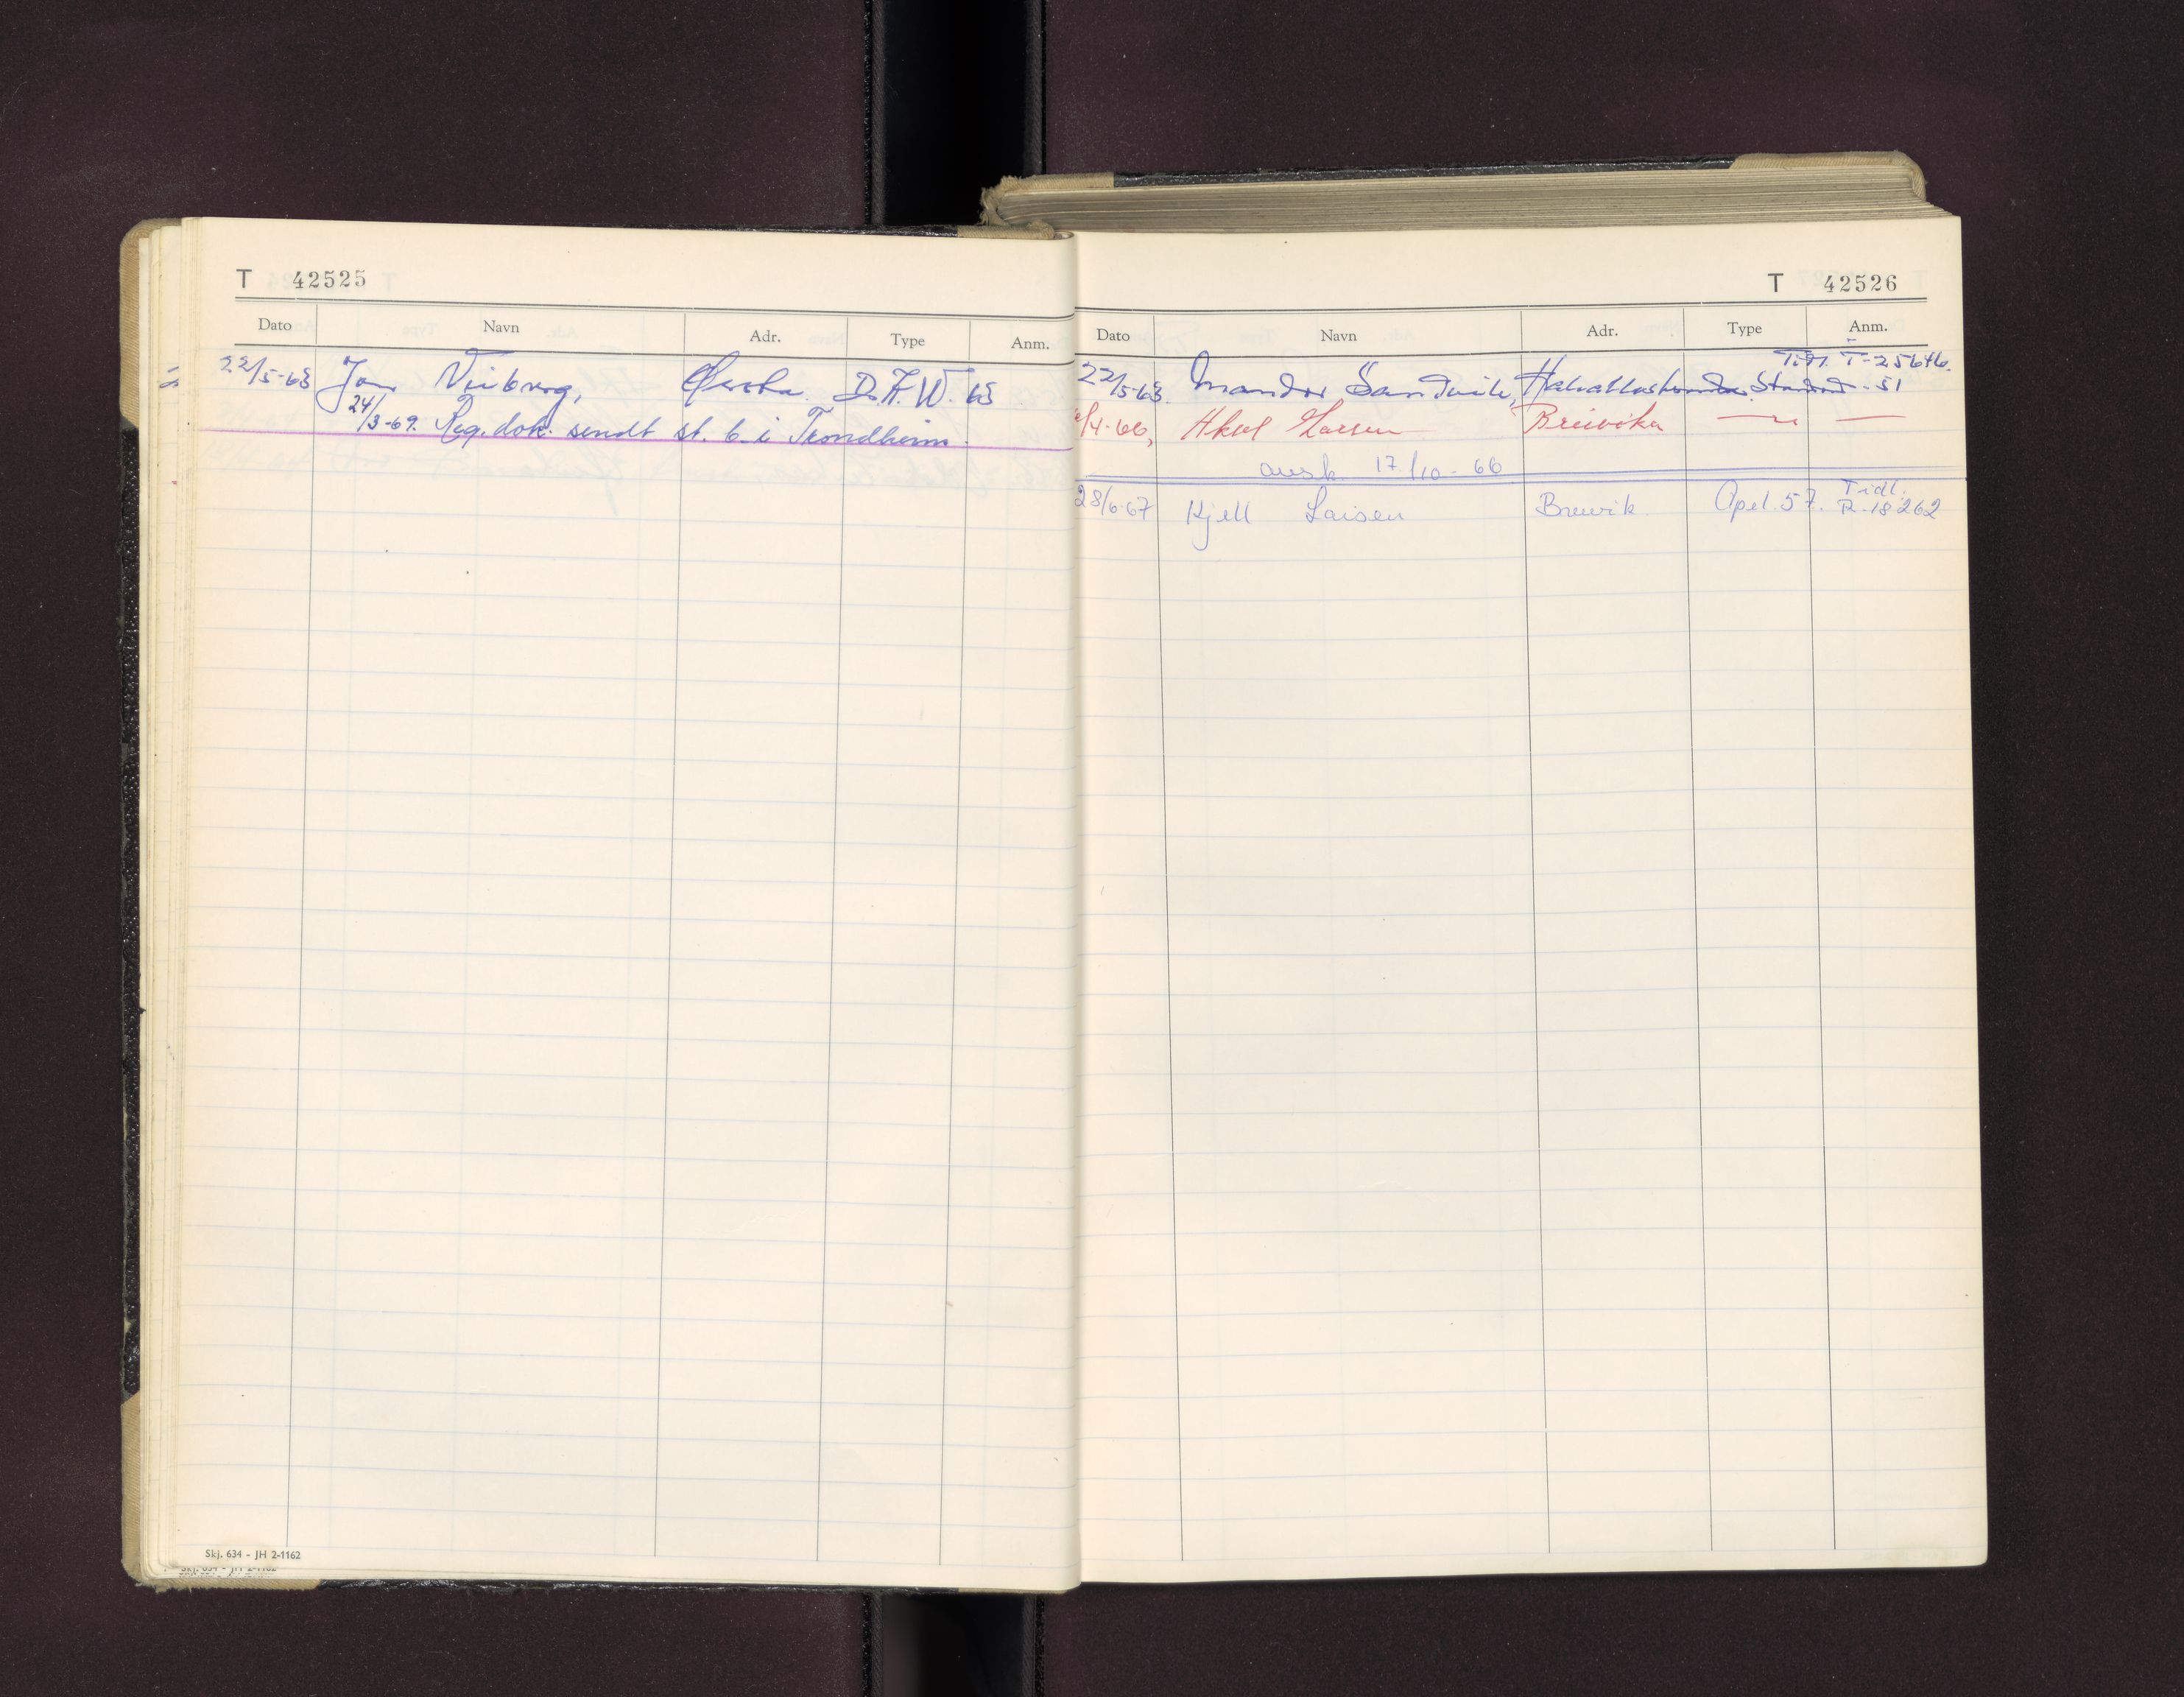 T 42525
Dato Navn Adr. Type Anm.
22/5-63 Jon Viiberg, Ørsta. D.K.W. 63
24/3-69. Reg. dok. sendt st. 6 i Trondheim.
Skj. 634 - JH 2-1162
T 42526
Dato Navn Adr. Type Anm.
T-25646.
22/5-63. Mandor Sandvik, Standard-51
/4-66, Aksel Larsen Breivika — " —
avsk. 17/10-66
28/6-67 Kjell Larsen Brevik Opel. 57. Tidl. R-18262